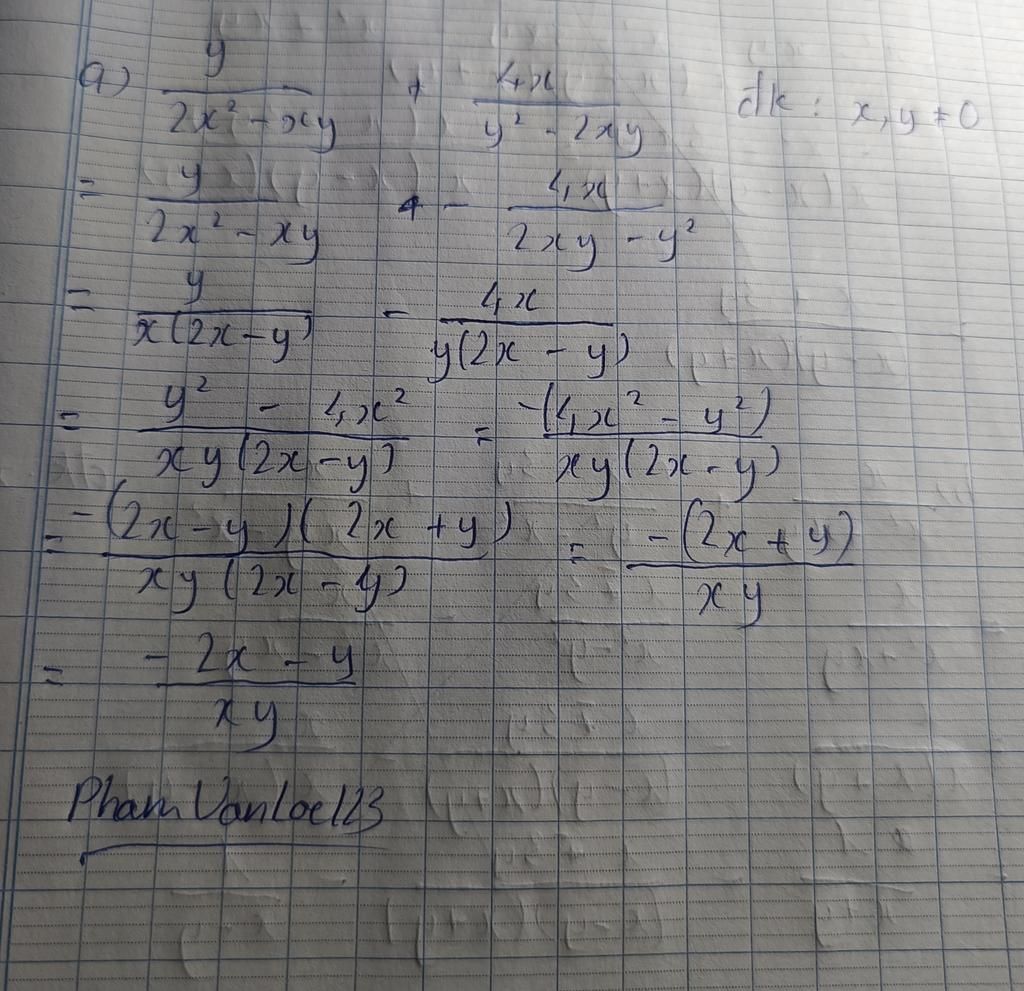 a) y/(2x² - xy) + 4x/(y² - 2xy) đk : x, y ≠ 0
= y/(2x² - xy) - 4x/(2xy - y²)
= y/(x(2x - y)) - 4x/(y(2x - y))
= (y² - 4x²)/(xy(2x - y)) = -(4x² - y²)/(xy(2x - y))
= -(2x - y)(2x + y)/(xy(2x - y)) = -(2x + y)/(xy)
= (-2x - y)/(xy)
PhamVanLoc123